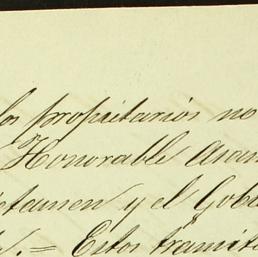 los propietarios no
Honorable Asam
ctamen y el Gob
. = Estos tramit